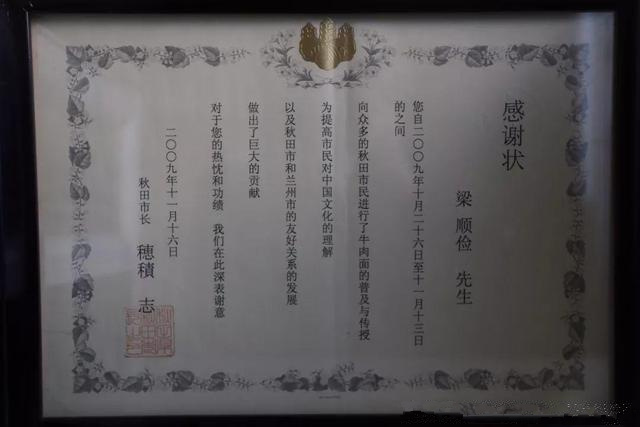 感谢状
梁 顺俭 先生
您自二〇〇九年十月二十六日至十一月十三日
的之间
向众多的秋田市民进行了牛肉面的普及与传授
为提高市民对中国文化的理解
以及秋田市和兰州市的友好关系的发展
做出了巨大的贡献
对于您的热忱和功绩 我们在此深表谢意
二〇〇九年十一月十六日
秋田市长 穂積 志